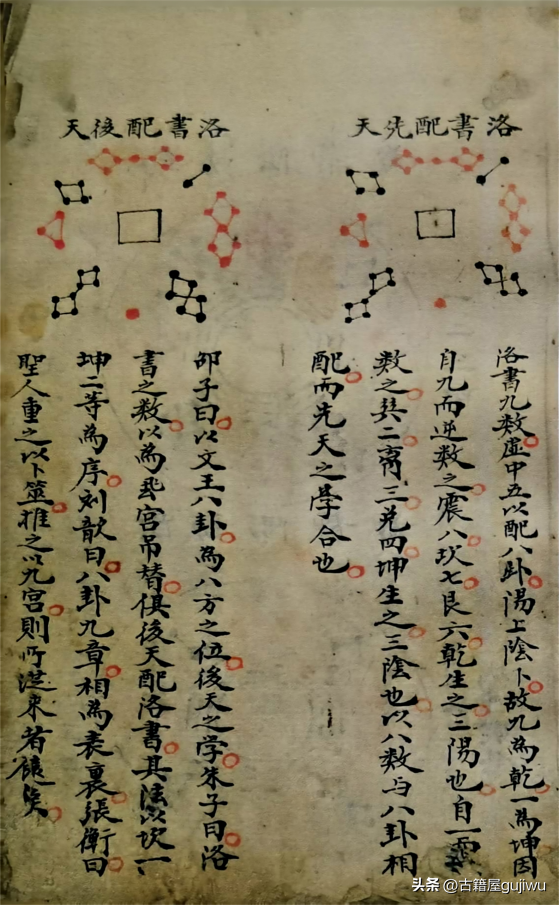 洛書配先天
洛書九數虛中五以配八卦陽上陰下故九為乾一為坤因
自九而逆數之震八坎七艮六乾生之三陽也自一
數之巽二离三兌四坤生之三陰也以八數与八卦相
配而先天之學合也
洛書配後天
邵子曰以文王八卦為八方之位後天之学朱子曰洛
書之數以為飛宮吊替俱後天配洛書其法以坎一
坤二等為序刘歆曰八卦九章相為表裏張衡曰
聖人重之以卜筮推之以九宮則所從來者遠矣
头条 @古籍屋gujiwu